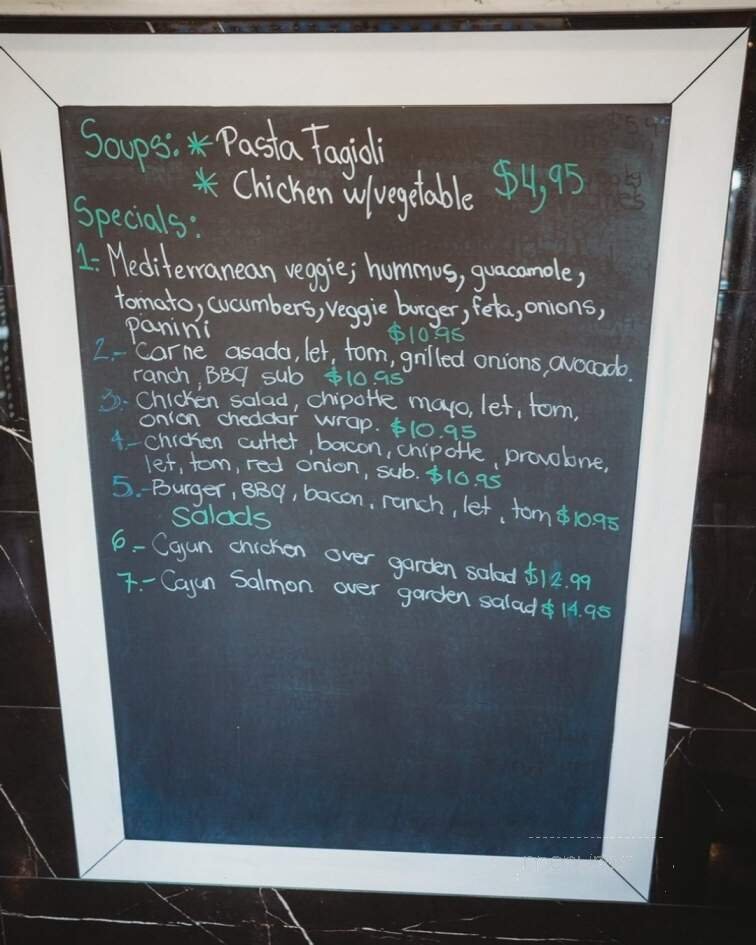 Soups: * Pasta Fagioli
* Chicken w/vegetable $4,95
Specials:
1- Mediterranean veggie; hummus, guacamole,
tomato, cucumbers, veggie burger, feta, onions,
panini $10.95
2.- Carne asada, let, tom, grilled onions, avocado.
ranch, BBQ sub $10.95
3.- Chicken salad, chipotle mayo, let, tom,
onion cheddar wrap. $10.95
4.- Chicken cutlet, bacon, chipotle, provolone,
let, tom, red onion, sub. $10.95
5.- Burger, BBQ, bacon, ranch, let, tom $10.95
Salads
6.- Cajun chicken over garden salad $12.99
7.- Cajun Salmon over garden salad $14.95